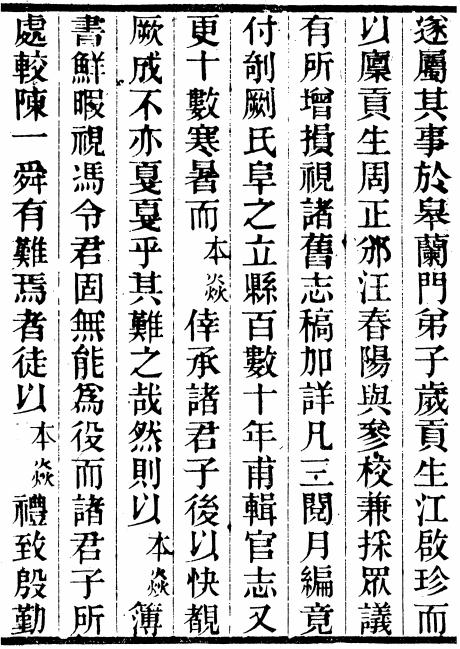 遂屬其事於皋蘭門弟子歲貢生江啟珍而
以廩貢生周正邠汪春陽與參校兼採眾議
有所增損視諸舊志稿加詳凡三閱月編竟
付剞劂氏阜之立縣百數十年甫輯官志又
更十數寒暑而本焱倖承諸君子後以快覩
厥成不亦戛戛乎其難之哉然則以本焱簿
書鮮暇視馮令君固無能為役而諸君子所
處較陳一舜有難焉者徒以本焱禮致殷勤